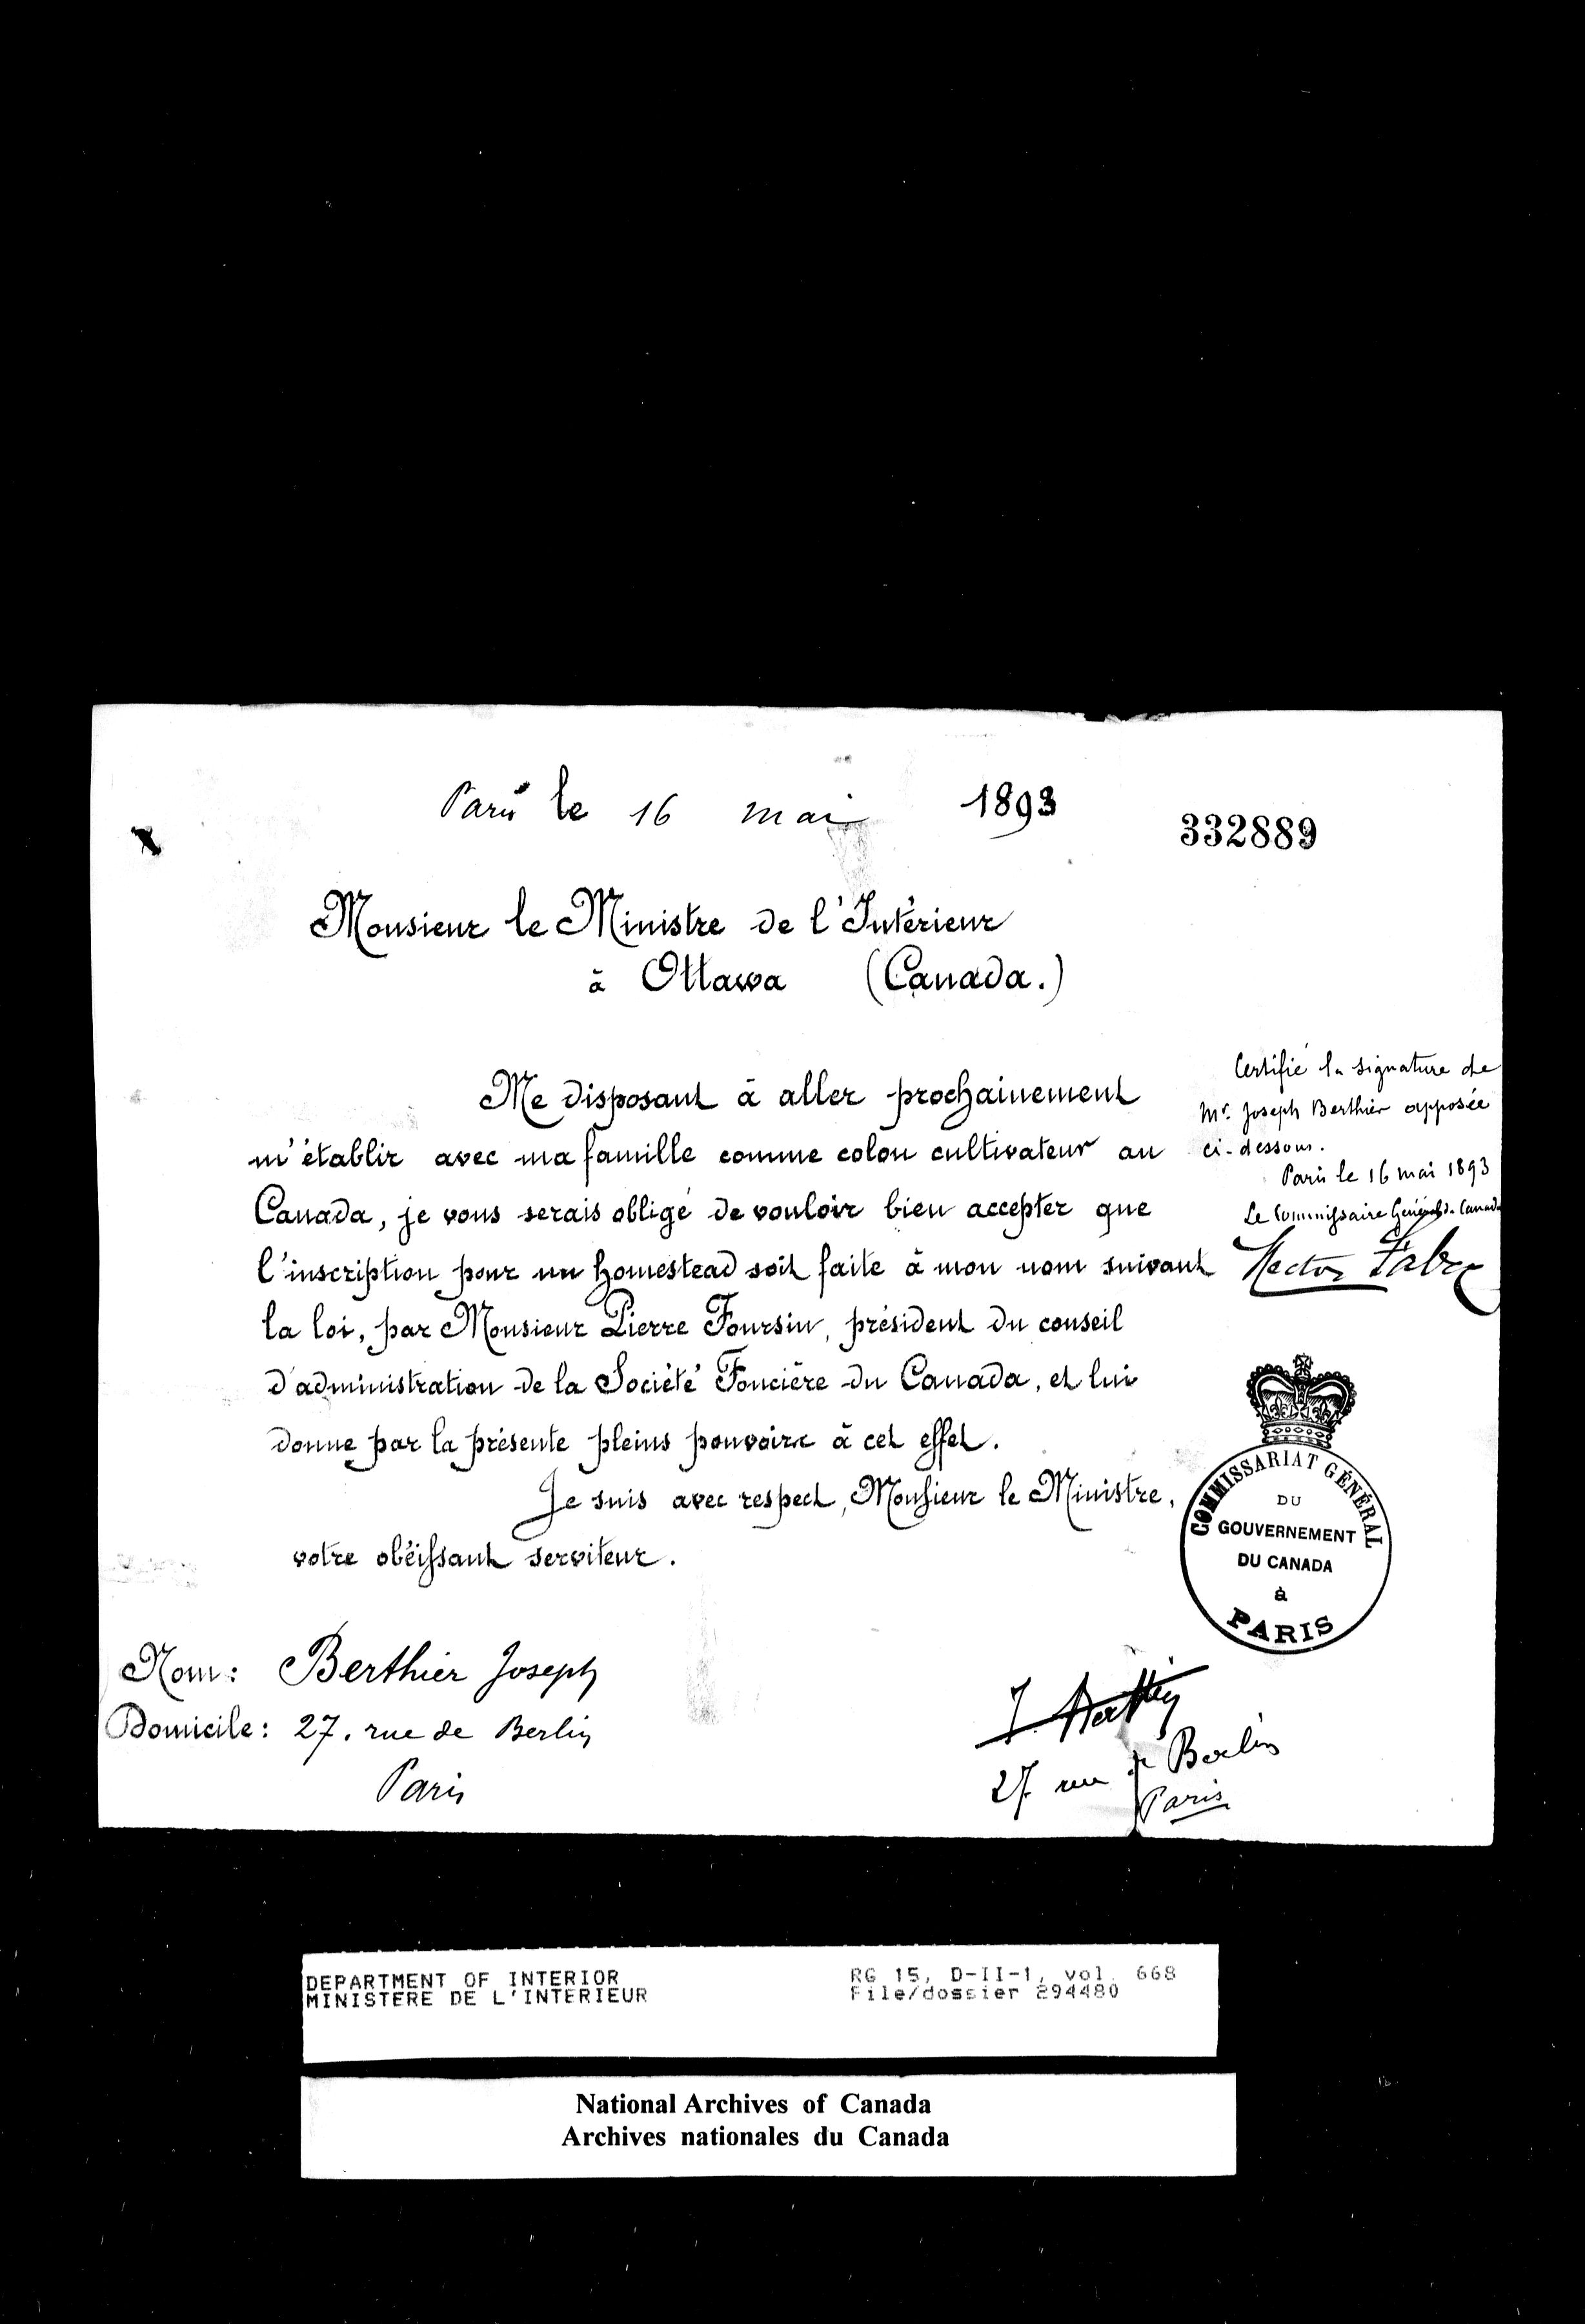 Paris le 16 mai 1893
332889
Monsieur le Ministre de l'Intérieur
à Ottawa (Canada.)
Me disposant à aller prochainement
m'établir avec ma famille comme colon cultivateur au
Canada, je vous serais obligé de vouloir bien accepter que
l'inscription pour un homestead soit faite à mon nom suivant
la loi, par Monsieur Pierre Foursin, président du conseil
d'administration de la Société Foncière du Canada, et lui
donne par la présente pleins pouvoirs à cet effet.
Je suis avec respect, Monsieur le Ministre,
votre obéissant serviteur.
Certifié la signature de
Mr. Joseph Berthier apposée
ci-dessous.
Paris le 16 mai 1893
Le Commissaire Général du Canada
Hector Fabre
COMMISSARIAT GÉNÉRAL
DU
GOUVERNEMENT
DU CANADA
à
PARIS
Nom: Berthier Joseph
Domicile: 27. rue de Berlin
Paris
J. Berthier
27 rue de Berlin
Paris
DEPARTMENT OF INTERIOR
MINISTERE DE L'INTERIEUR
RG 15, D-II-1, vol. 668
File/dossier 294480
National Archives of Canada
Archives nationales du Canada